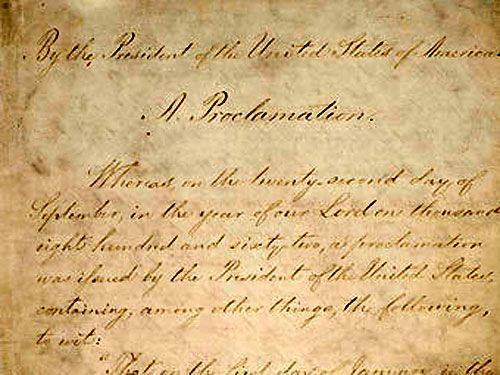 By the President of the United States of America
A Proclamation.
Whereas on the twenty-second day of
September, in the year of our Lord one thousand
eight hundred and sixty-two, a proclamation
was issued by the President of the United States,
containing, among other things, the following,
to wit:
"That on the first day of January, in the